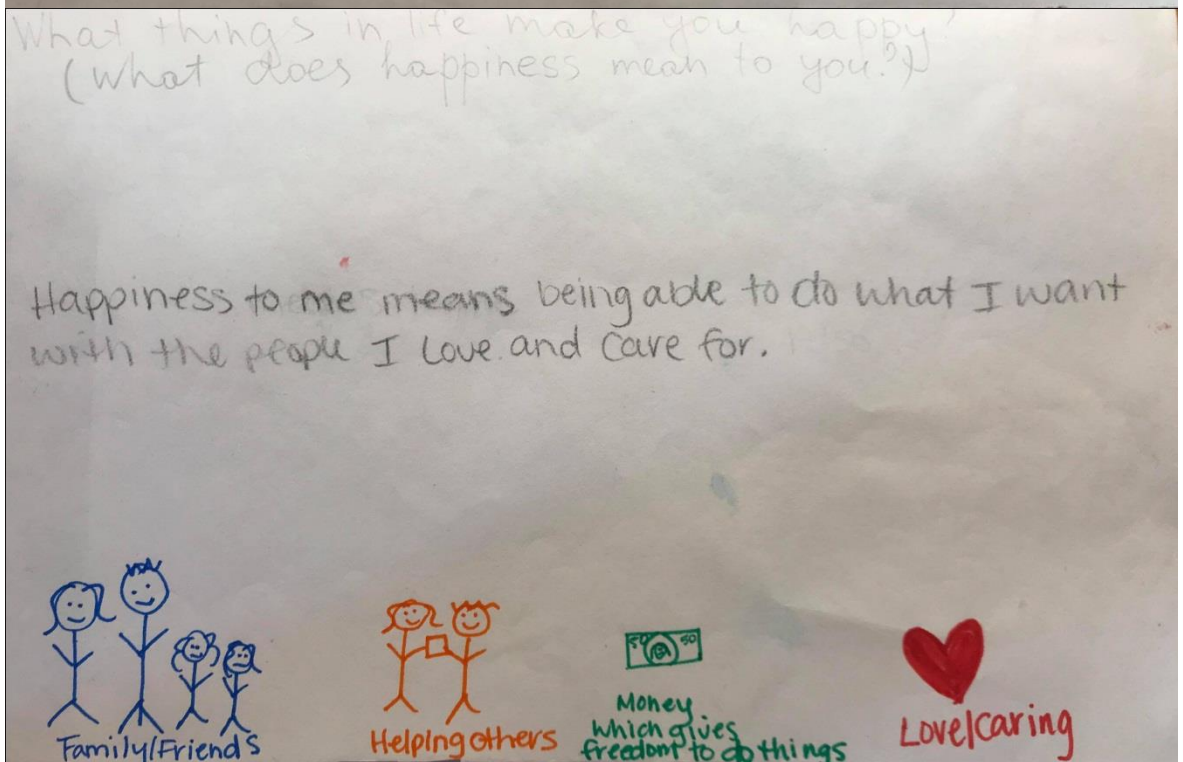 What things in life make you happy?
(What does happiness mean to you?)
Happiness to me means being able to do what I want
with the people I love and care for.
50 50
Family/Friends
Helping others
Money
which gives
freedom to do things
Love/caring